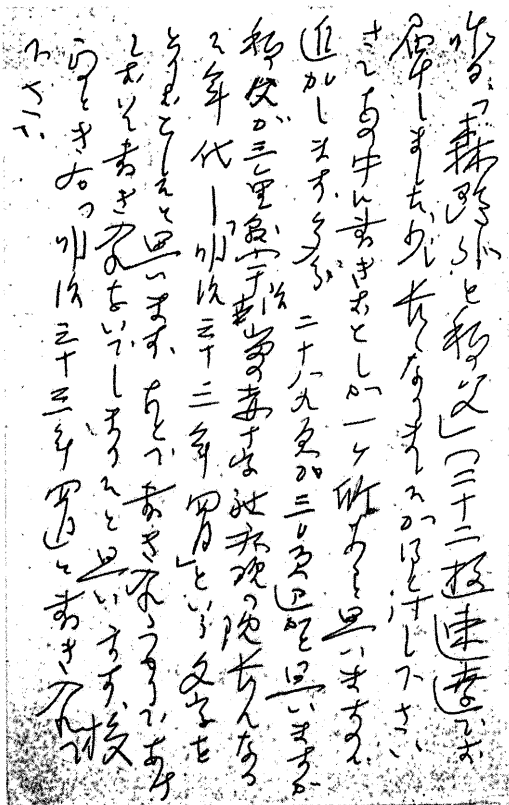 昨日「森鴎外と私の父」(三十二枚速達でお
届けしました、少し長くなりましたがお許し下さい
さてあの中に書きおとしが一ヶ所あると思いますので
追加します、多分二十八九頁か三十頁辺かと思いますが
私の父が三重県 の赤十字社病院の院長になる
年代―「明治三十三年四月」という文字を
おとしたと思います、あとで書き入れるつもりであけ
ておいて書き入れないでしまったと思います、校
のとき右の「明治三十三年四月」と書き入れて
下さい